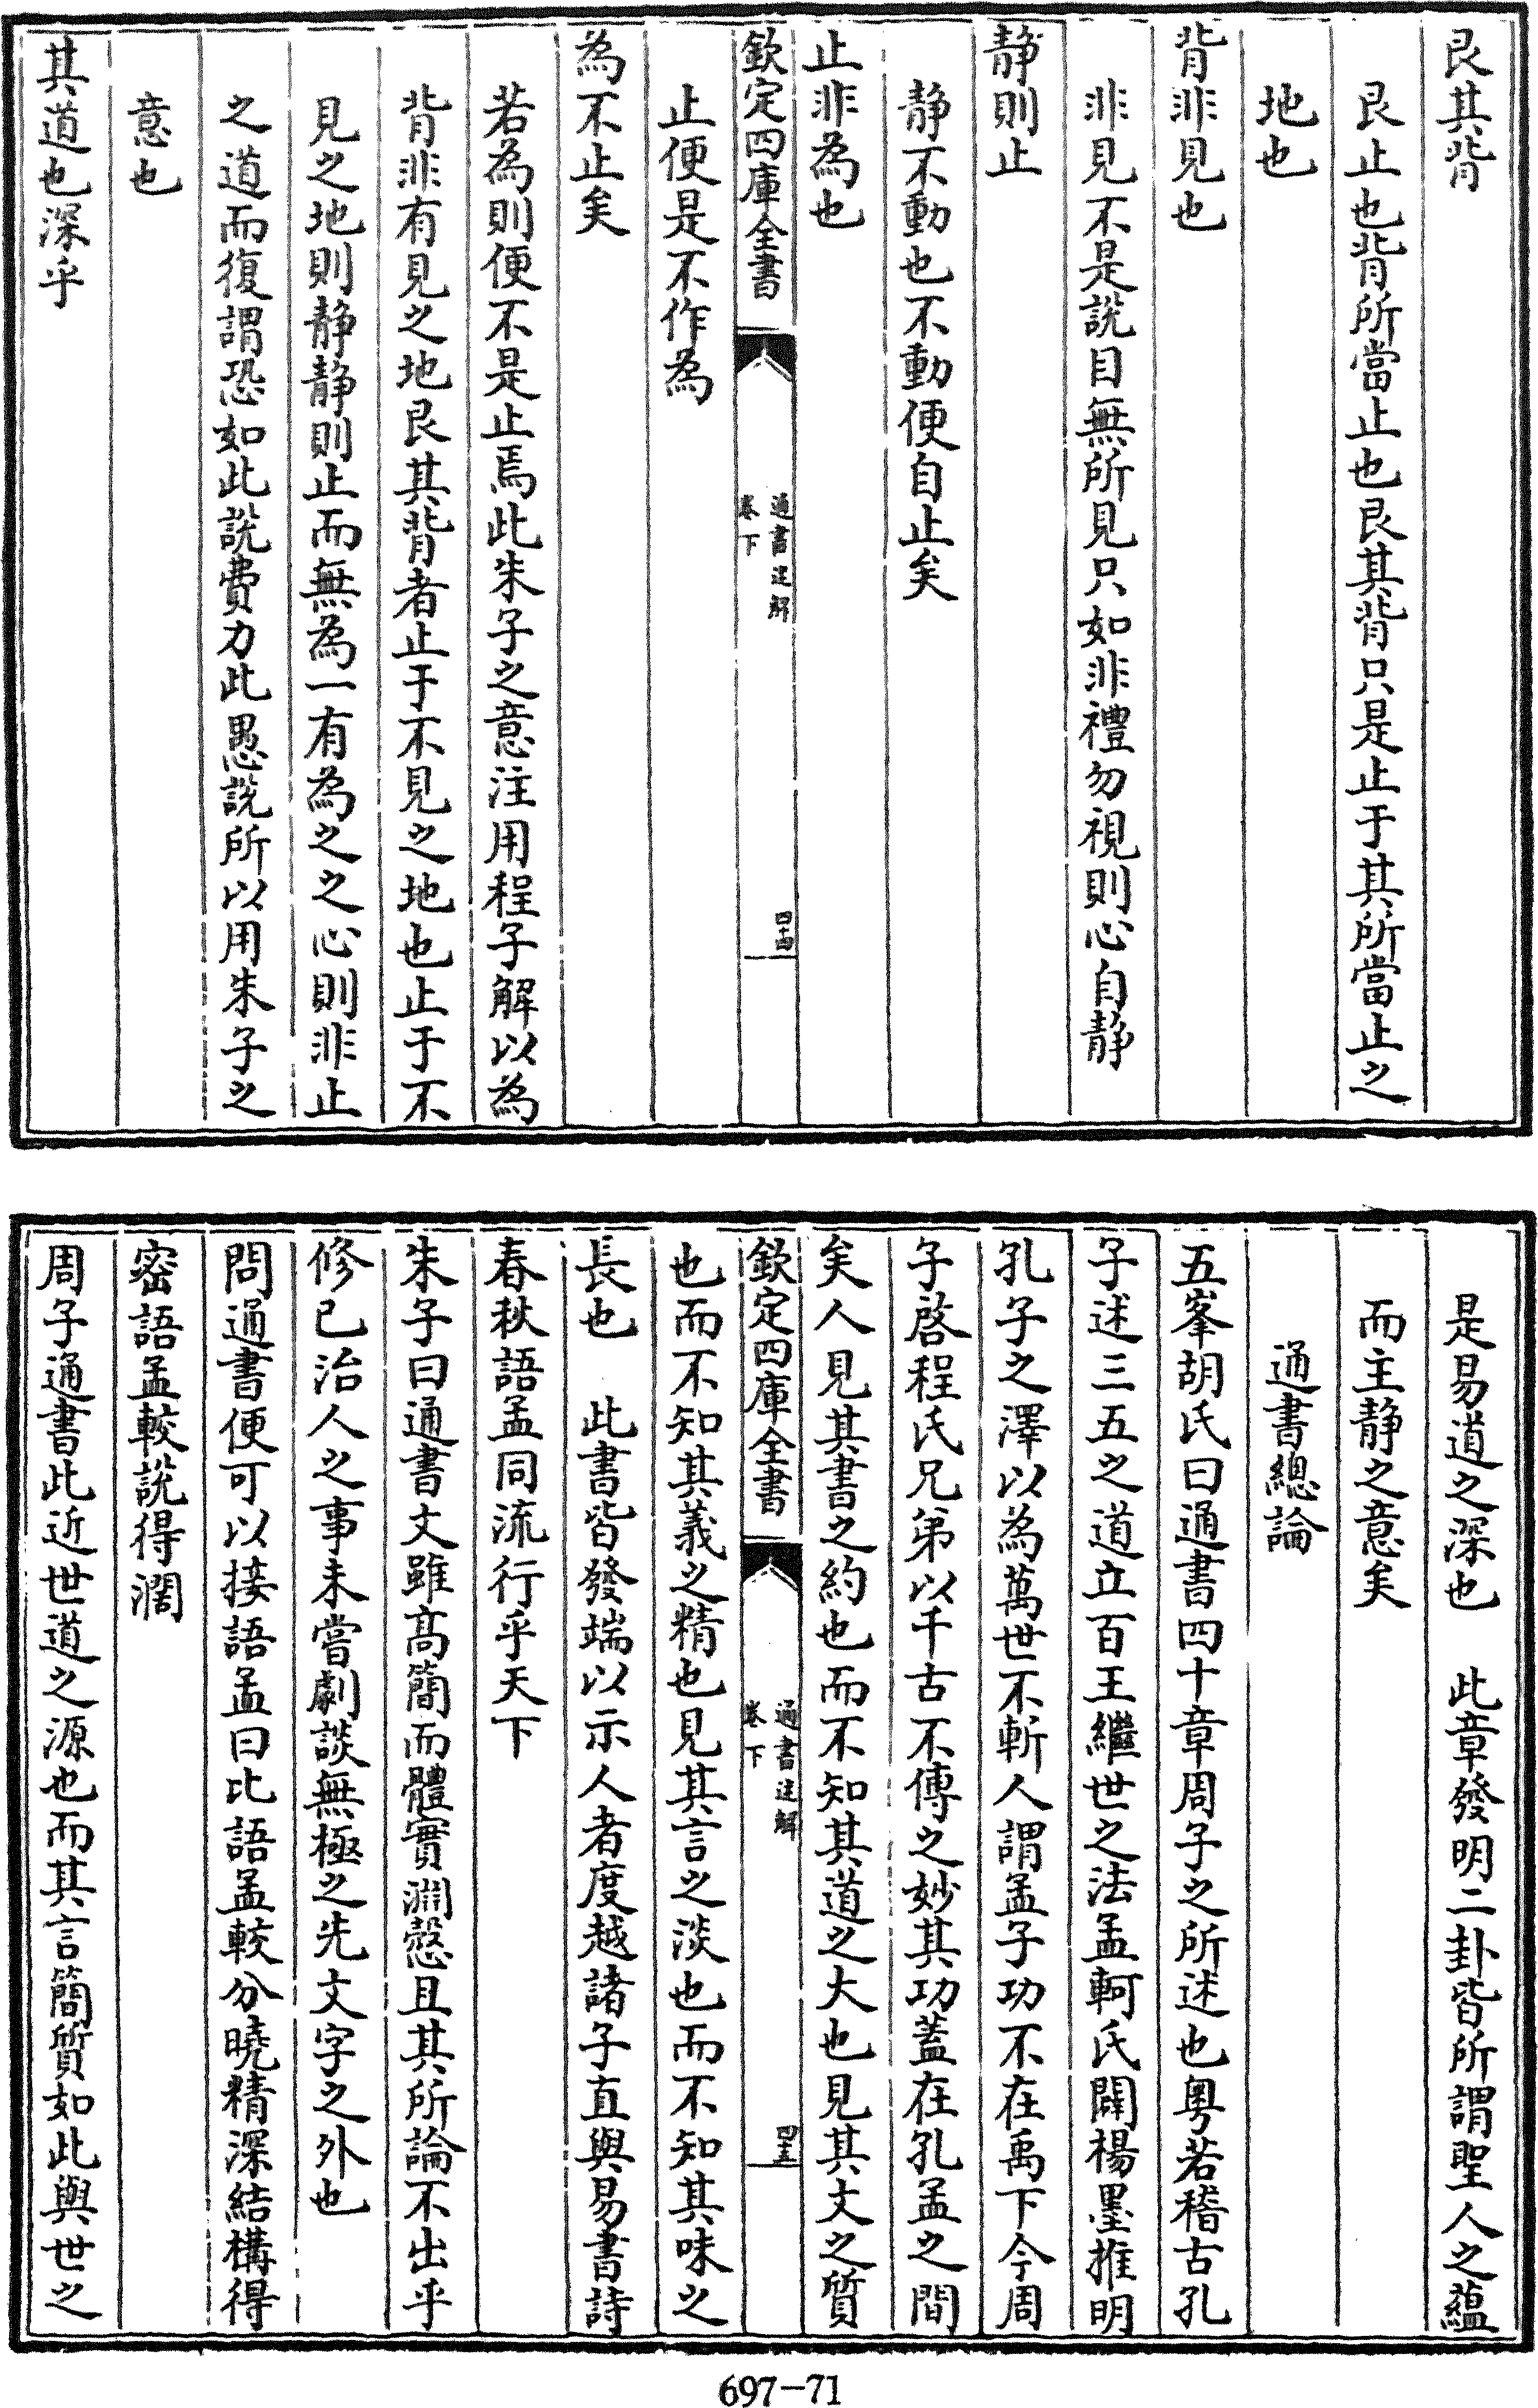 艮其背
艮止也背所當止也艮其背只是止于其所當止之
地也
背非見也
非見不是說目無所見只如非禮勿視則心自静
静則止
静不動也不動便自止矣
止非為也
欽定四庫全書
通書述解
卷下
四十四
止便是不作為
為不止矣
若為則便不是止焉此朱子之意注用程子解以為
背非有見之地艮其背者止于不見之地也止于不
見之地則静静則止而無為一有為之之心則非止
之道而復謂恐如此說費力此愚說所以用朱子之
意也
其道也深乎
是易道之深也 此章發明二卦皆所謂聖人之蘊
而主静之意矣
通書總論
五峯胡氏曰通書四十章周子之所述也粤若稽古孔
子述三五之道立百王繼世之法孟軻氏闢楊墨推明
孔子之澤以為萬世不斬人謂孟子功不在禹下今周
子啓程氏兄弟以千古不傳之妙其功蓋在孔孟之間
矣人見其書之約也而不知其道之大也見其文之質
欽定四庫全書
通書述解
卷下
四十五
也而不知其義之精也見其言之淡也而不知其味之
長也 此書皆發端以示人者度越諸子直與易書詩
春秋語孟同流行乎天下
朱子曰通書文雖髙簡而體實淵慤且其所論不出乎
修已治人之事未嘗劇談無極之先文字之外也
問通書便可以接語孟曰比語孟較分曉精深結構得
密語孟較說得濶
周子通書此近世道之源也而其言簡質如此與世之
697-71